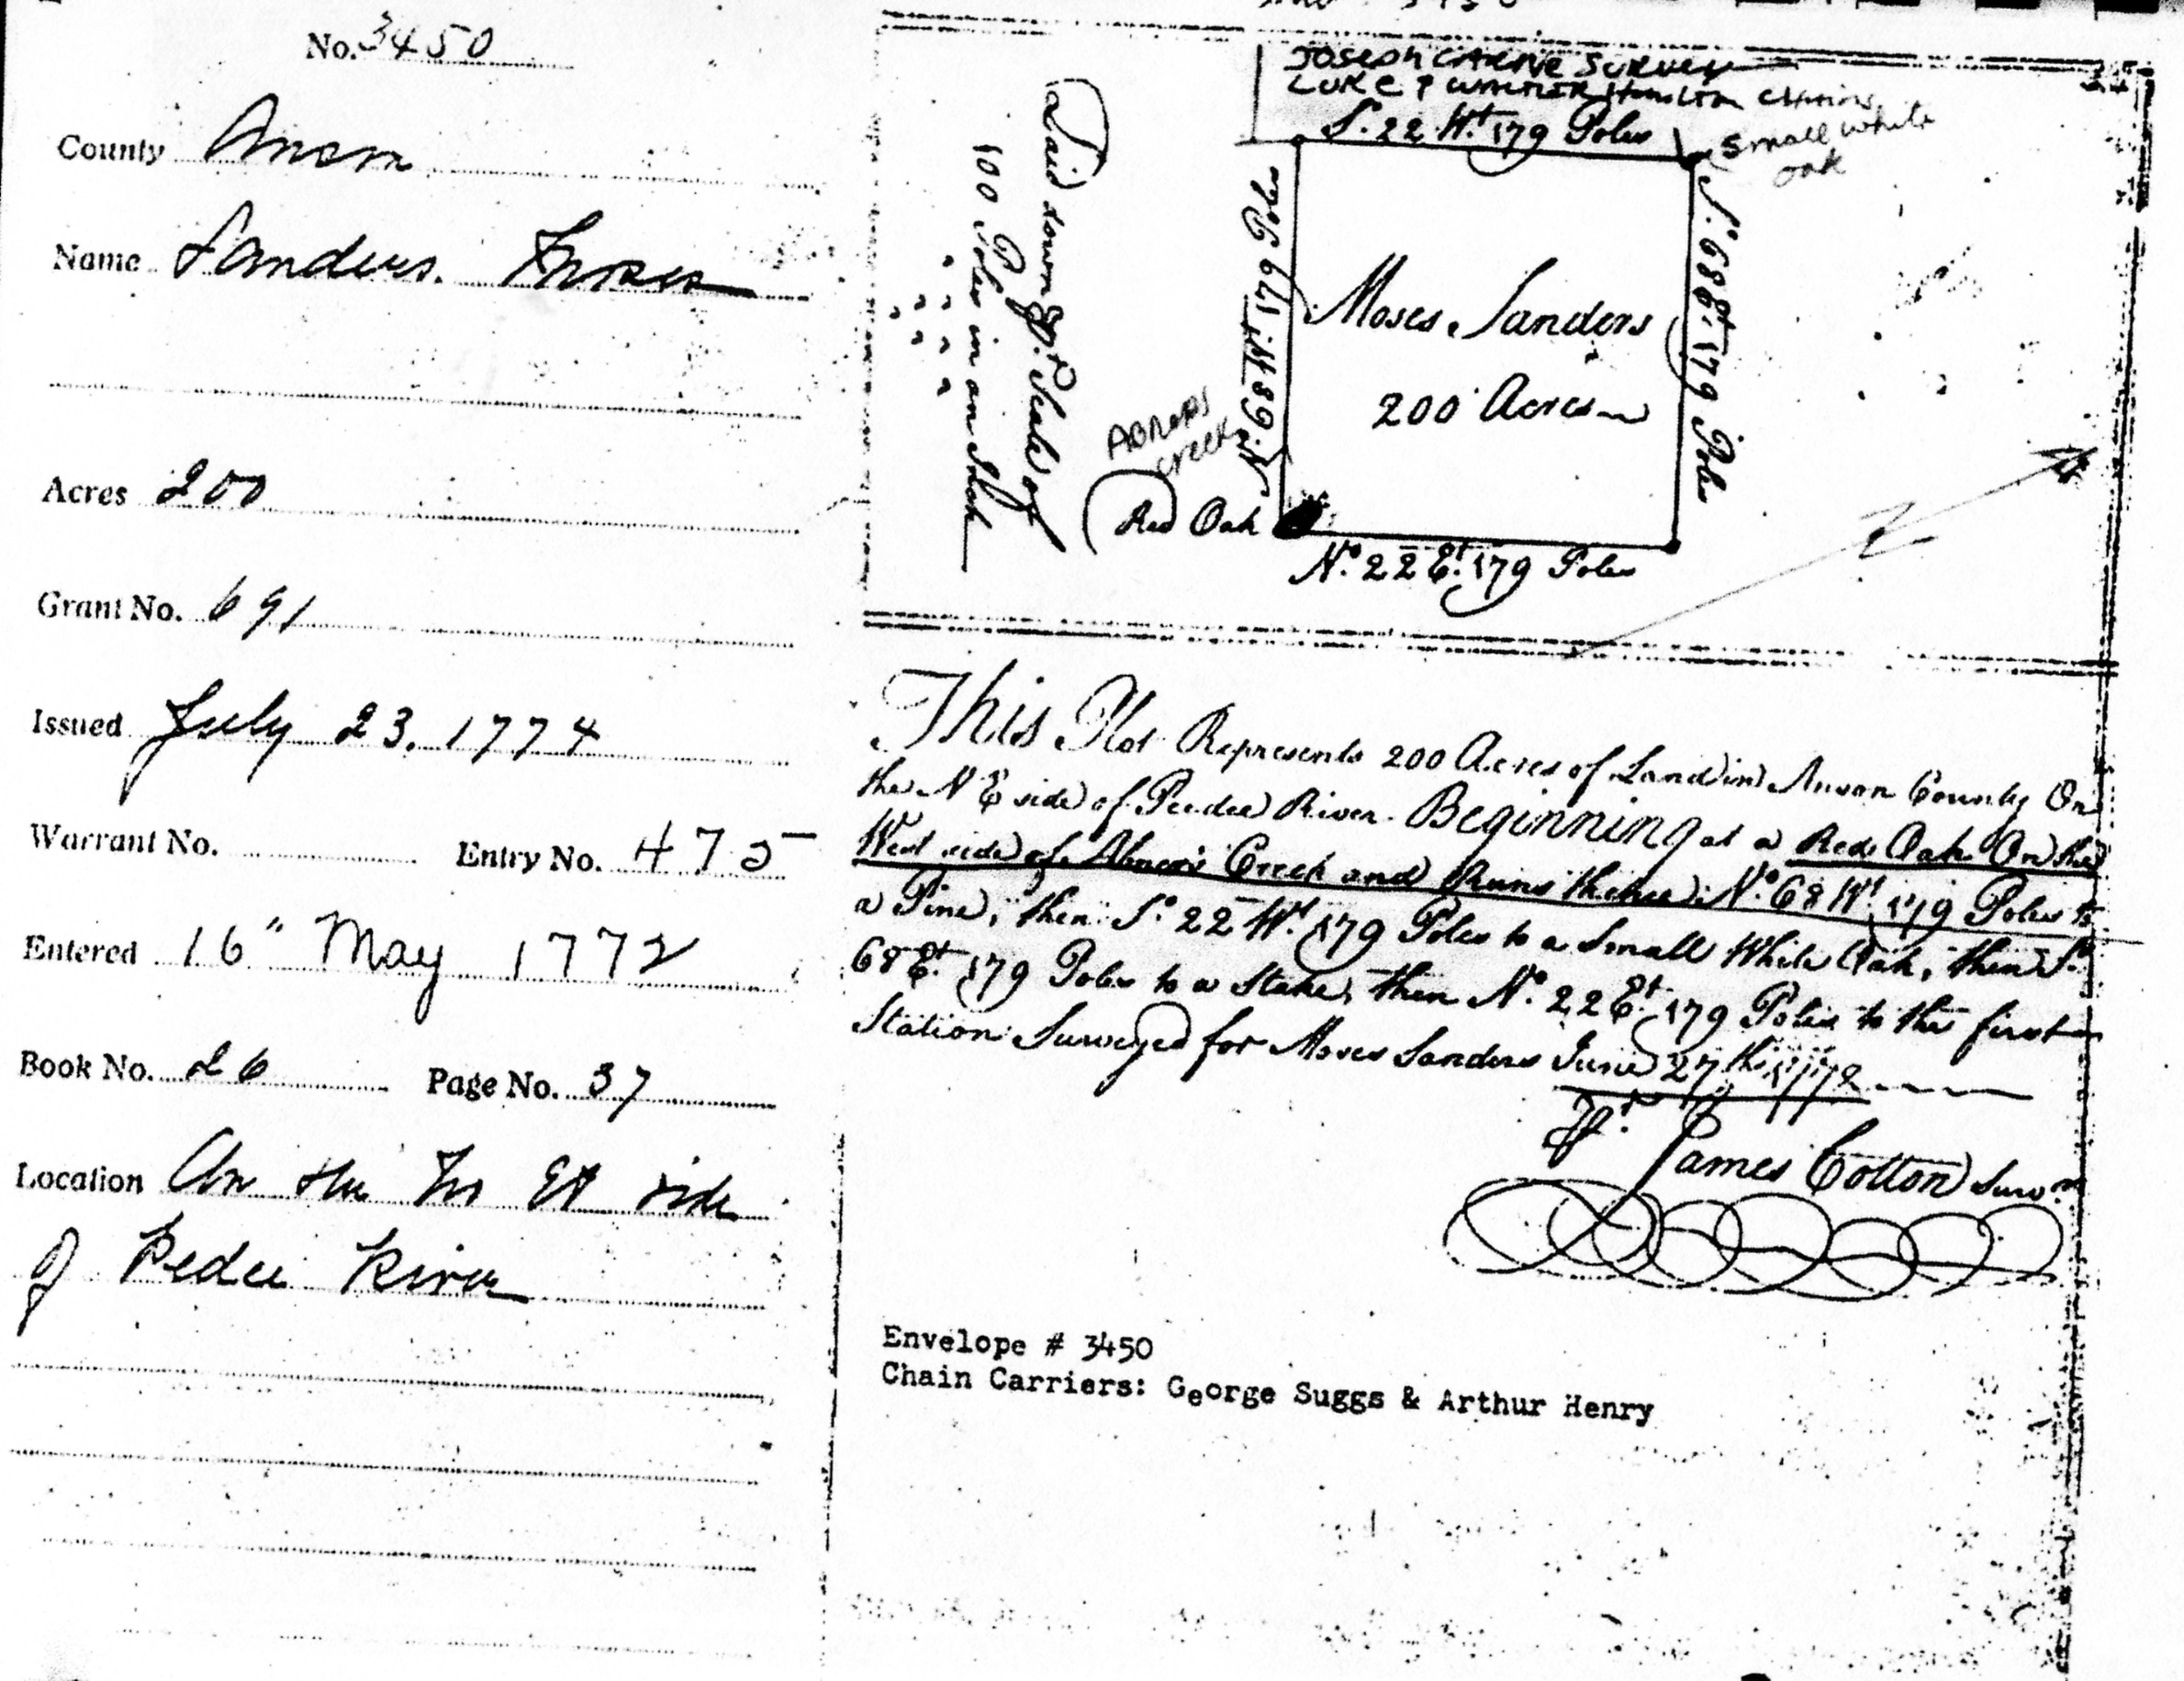 No. 3450
County Anson
Name Sanders. Moses
Acres 200
Grant No. 691
Issued July 23, 1774
Warrant No. Entry No. 475
Entered 16" May 1772
Book No. 26 Page No. 37
Location On the No Et side
of Pedee River
JOSEPH SURVEY
LUKE &
So. 22 Wt. 179 Poles
Small white
oak
Laid down by a Scale of
100 Poles in an Inch
No. 68 Wt. 179 Poles
So. 68 Et. 179 Poles
Moses Sanders
200 Acres
ABNERS
creek
Red Oak
No. 22 Et. 179 Poles
This Plot Represents 200 Acres of Land in Anson County On
the N E side of Peedee River. Beginning at a Red Oak On the
West side of Abners Creek and Runs thence No. 68 Wt. 179 Poles to
a Pine, then So. 22 Wt. 179 Poles to a Small White Oak, then So.
68 Et. 179 Poles to a Stake, then No. 22 Et. 179 Poles to the first
Station Surveyed for Moses Sanders June 27th. 1772
Pr. James Cotton Survr.
Envelope # 3450
Chain Carriers: George Suggs & Arthur Henry